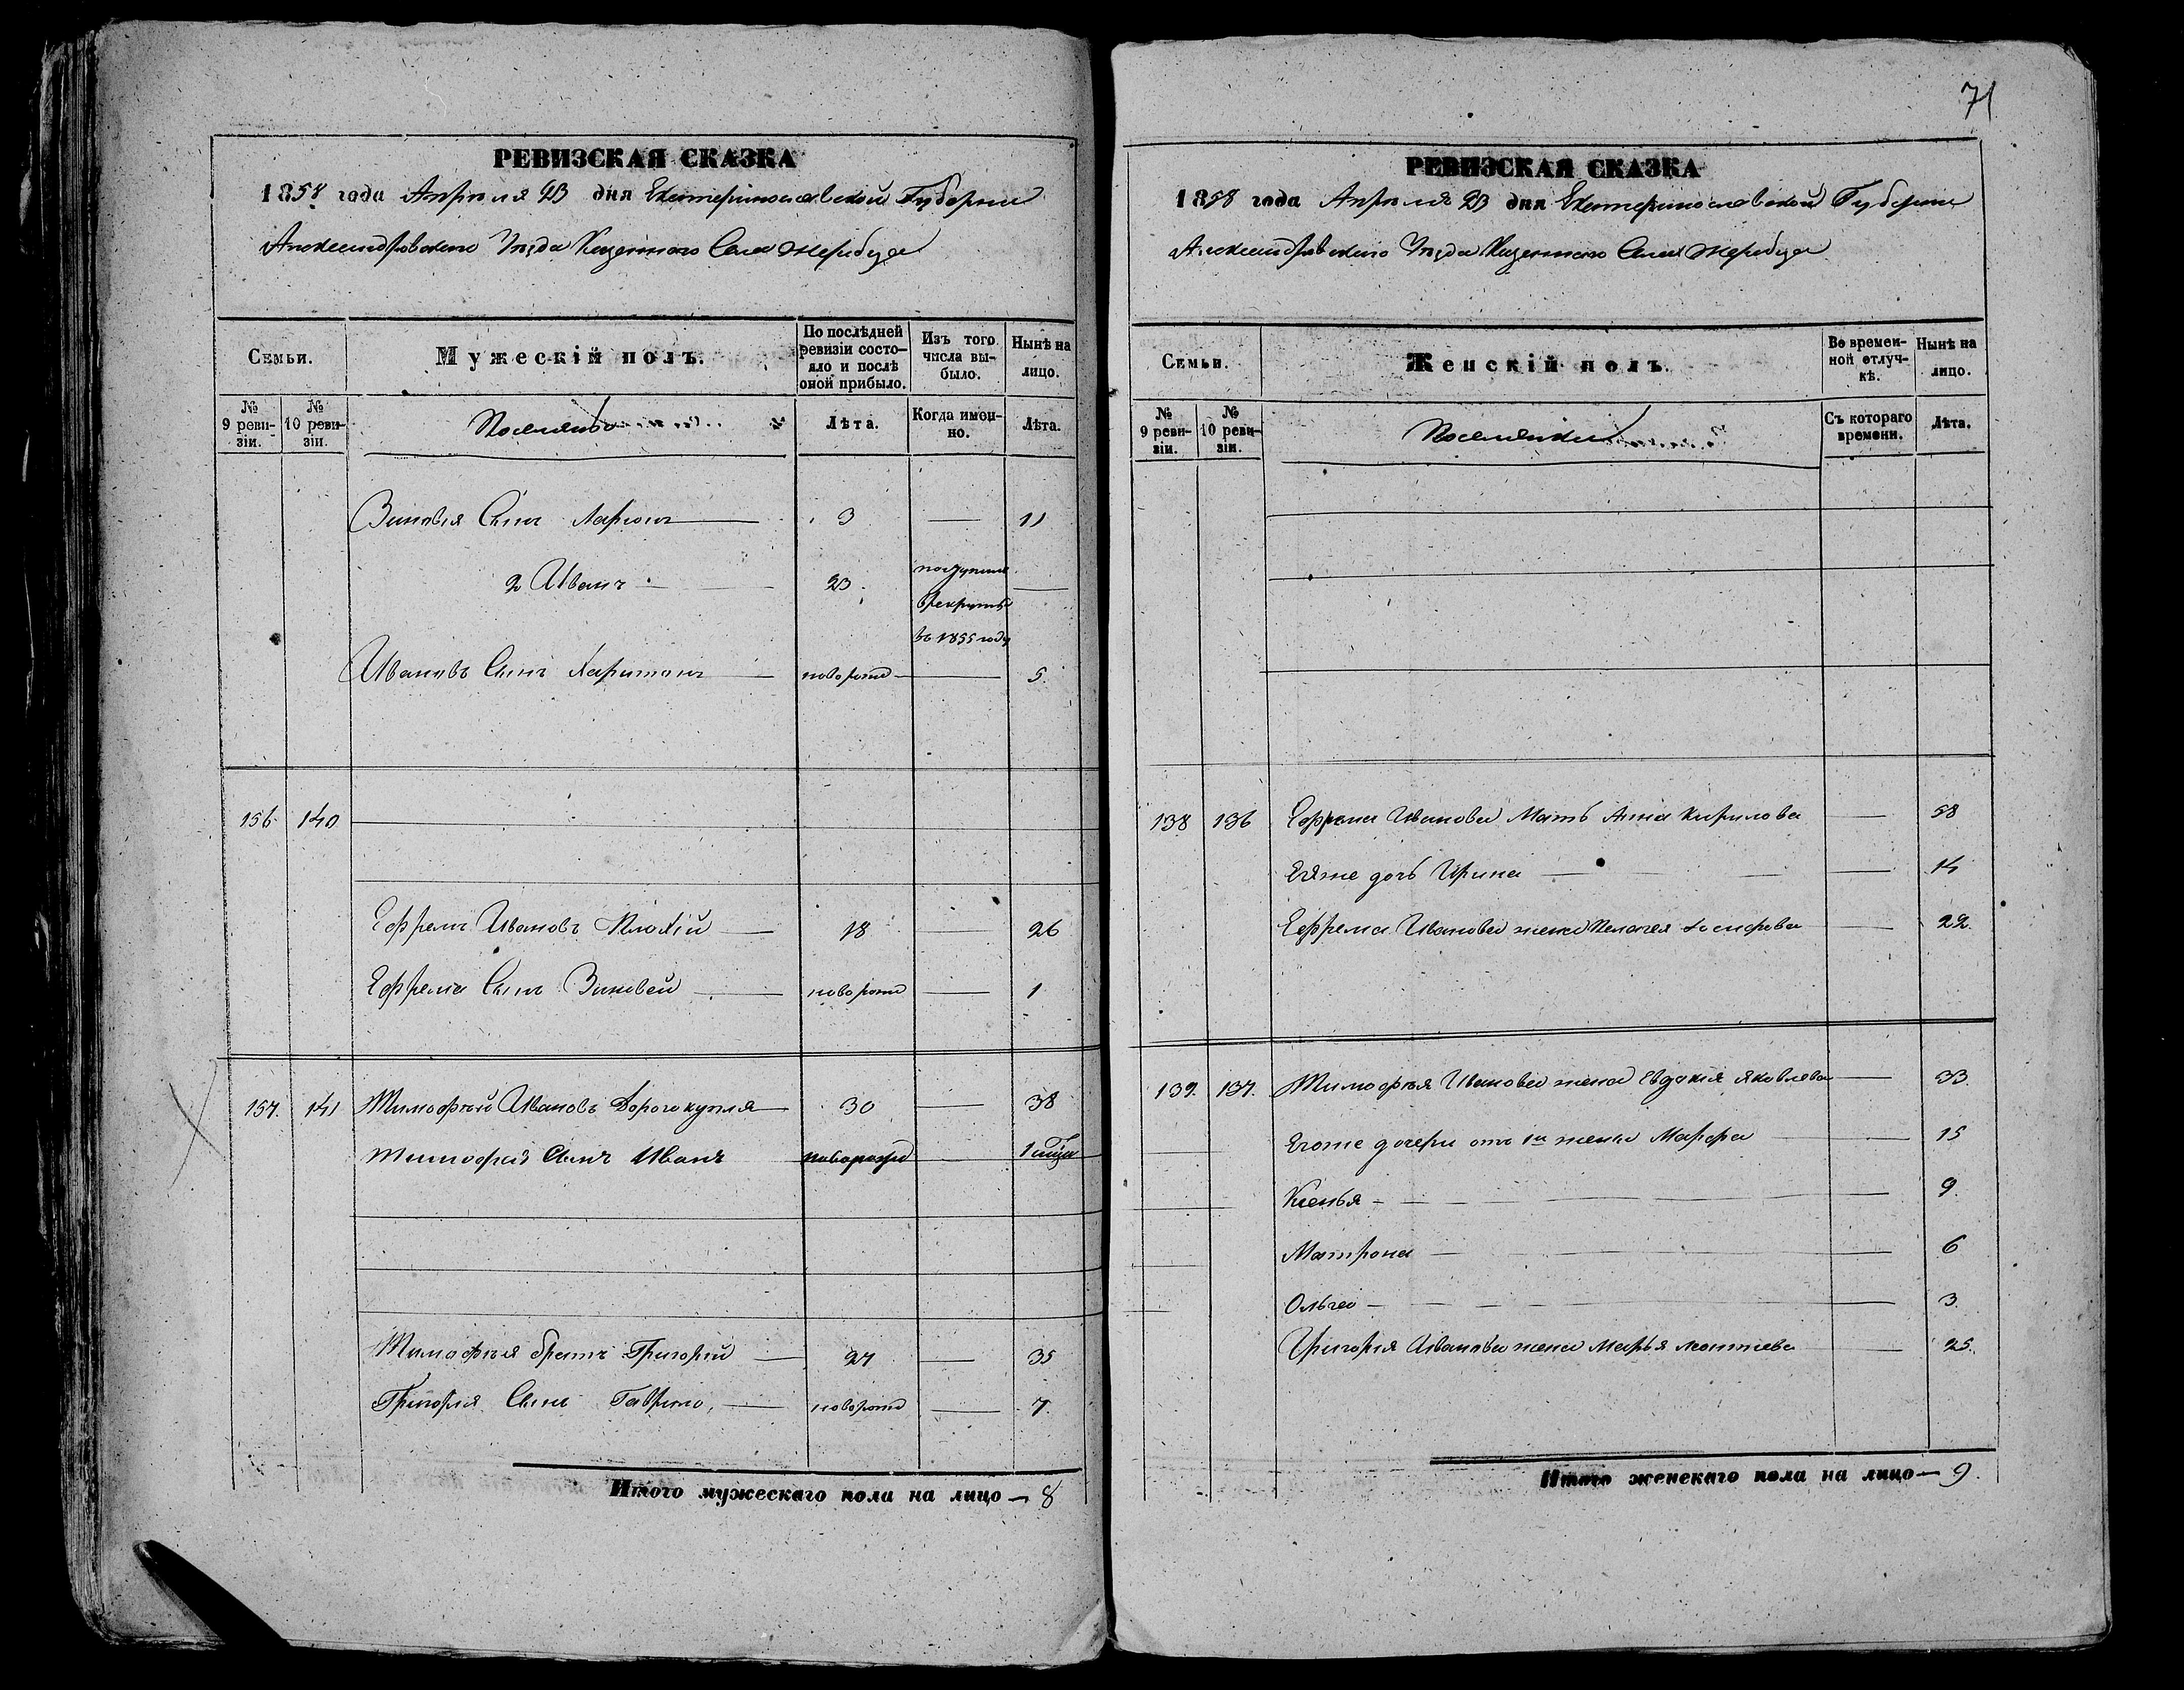 РЕВИЗСКАЯ СКАЗКА
1858 года Апреля 23 дня Екатеринославской Губернии
Александровского Уезда Казенного Села Жеребца
Семьи.
Мужескій полъ.
По послѣдней ревизіи состояло и послѣ оной прибыло.
Изъ того числа выбыло.
Нынѣ на лицо.
№ 9 ревизіи.
№ 10 ревизіи.
Лѣта.
Когда именно.
Лѣта.
Зиновія Сынъ Ларіонъ 3 — 11
2 Иванъ 23 поступилъ в рекруты въ 1855 году —
Ивановъ Сынъ Харитонъ новорожд — 5
156 140
Ефремъ Ивановъ Плохій 18 — 26
Ефрема Сынъ Зиновей новорожд — 1
157. 141 Тимофей Ивановъ Дорогокупля 30 — 38
Тимофея Сынъ Иванъ новорожд —
Тимофея братъ Григорій 27 — 35
Григорія Сынъ Гаврило новорожд — 7.
Итого мужескаго пола на лицо — 8
71
РЕВИЗСКАЯ СКАЗКА
1858 года Апреля 23 дня Екатеринославской Губернии
Александровского Уезда Казенного Села Жеребца
Семьи.
Женскій полъ.
Во временной отлучкѣ.
Нынѣ на лицо.
№ 9 ревизіи.
№ 10 ревизіи.
Поселянки
Съ котораго времени.
Лѣта.
138 136 Ефрема Иванова Мать Анна Кирилова — 58
Еяже дочь Ирина — 14
Ефрема Иванова жена Пелагея — 22.
139. 137. Тимофея Иванова жена Евдокія Яковлева — 33.
Егоже дочери отъ 1й жены Марфа — 15
Ксенья — 9.
Матрона — 6
Ольга — 3.
Григорія Иванова жена Марья Леонтіева — 25.
Итого женскаго пола на лицо — 9.